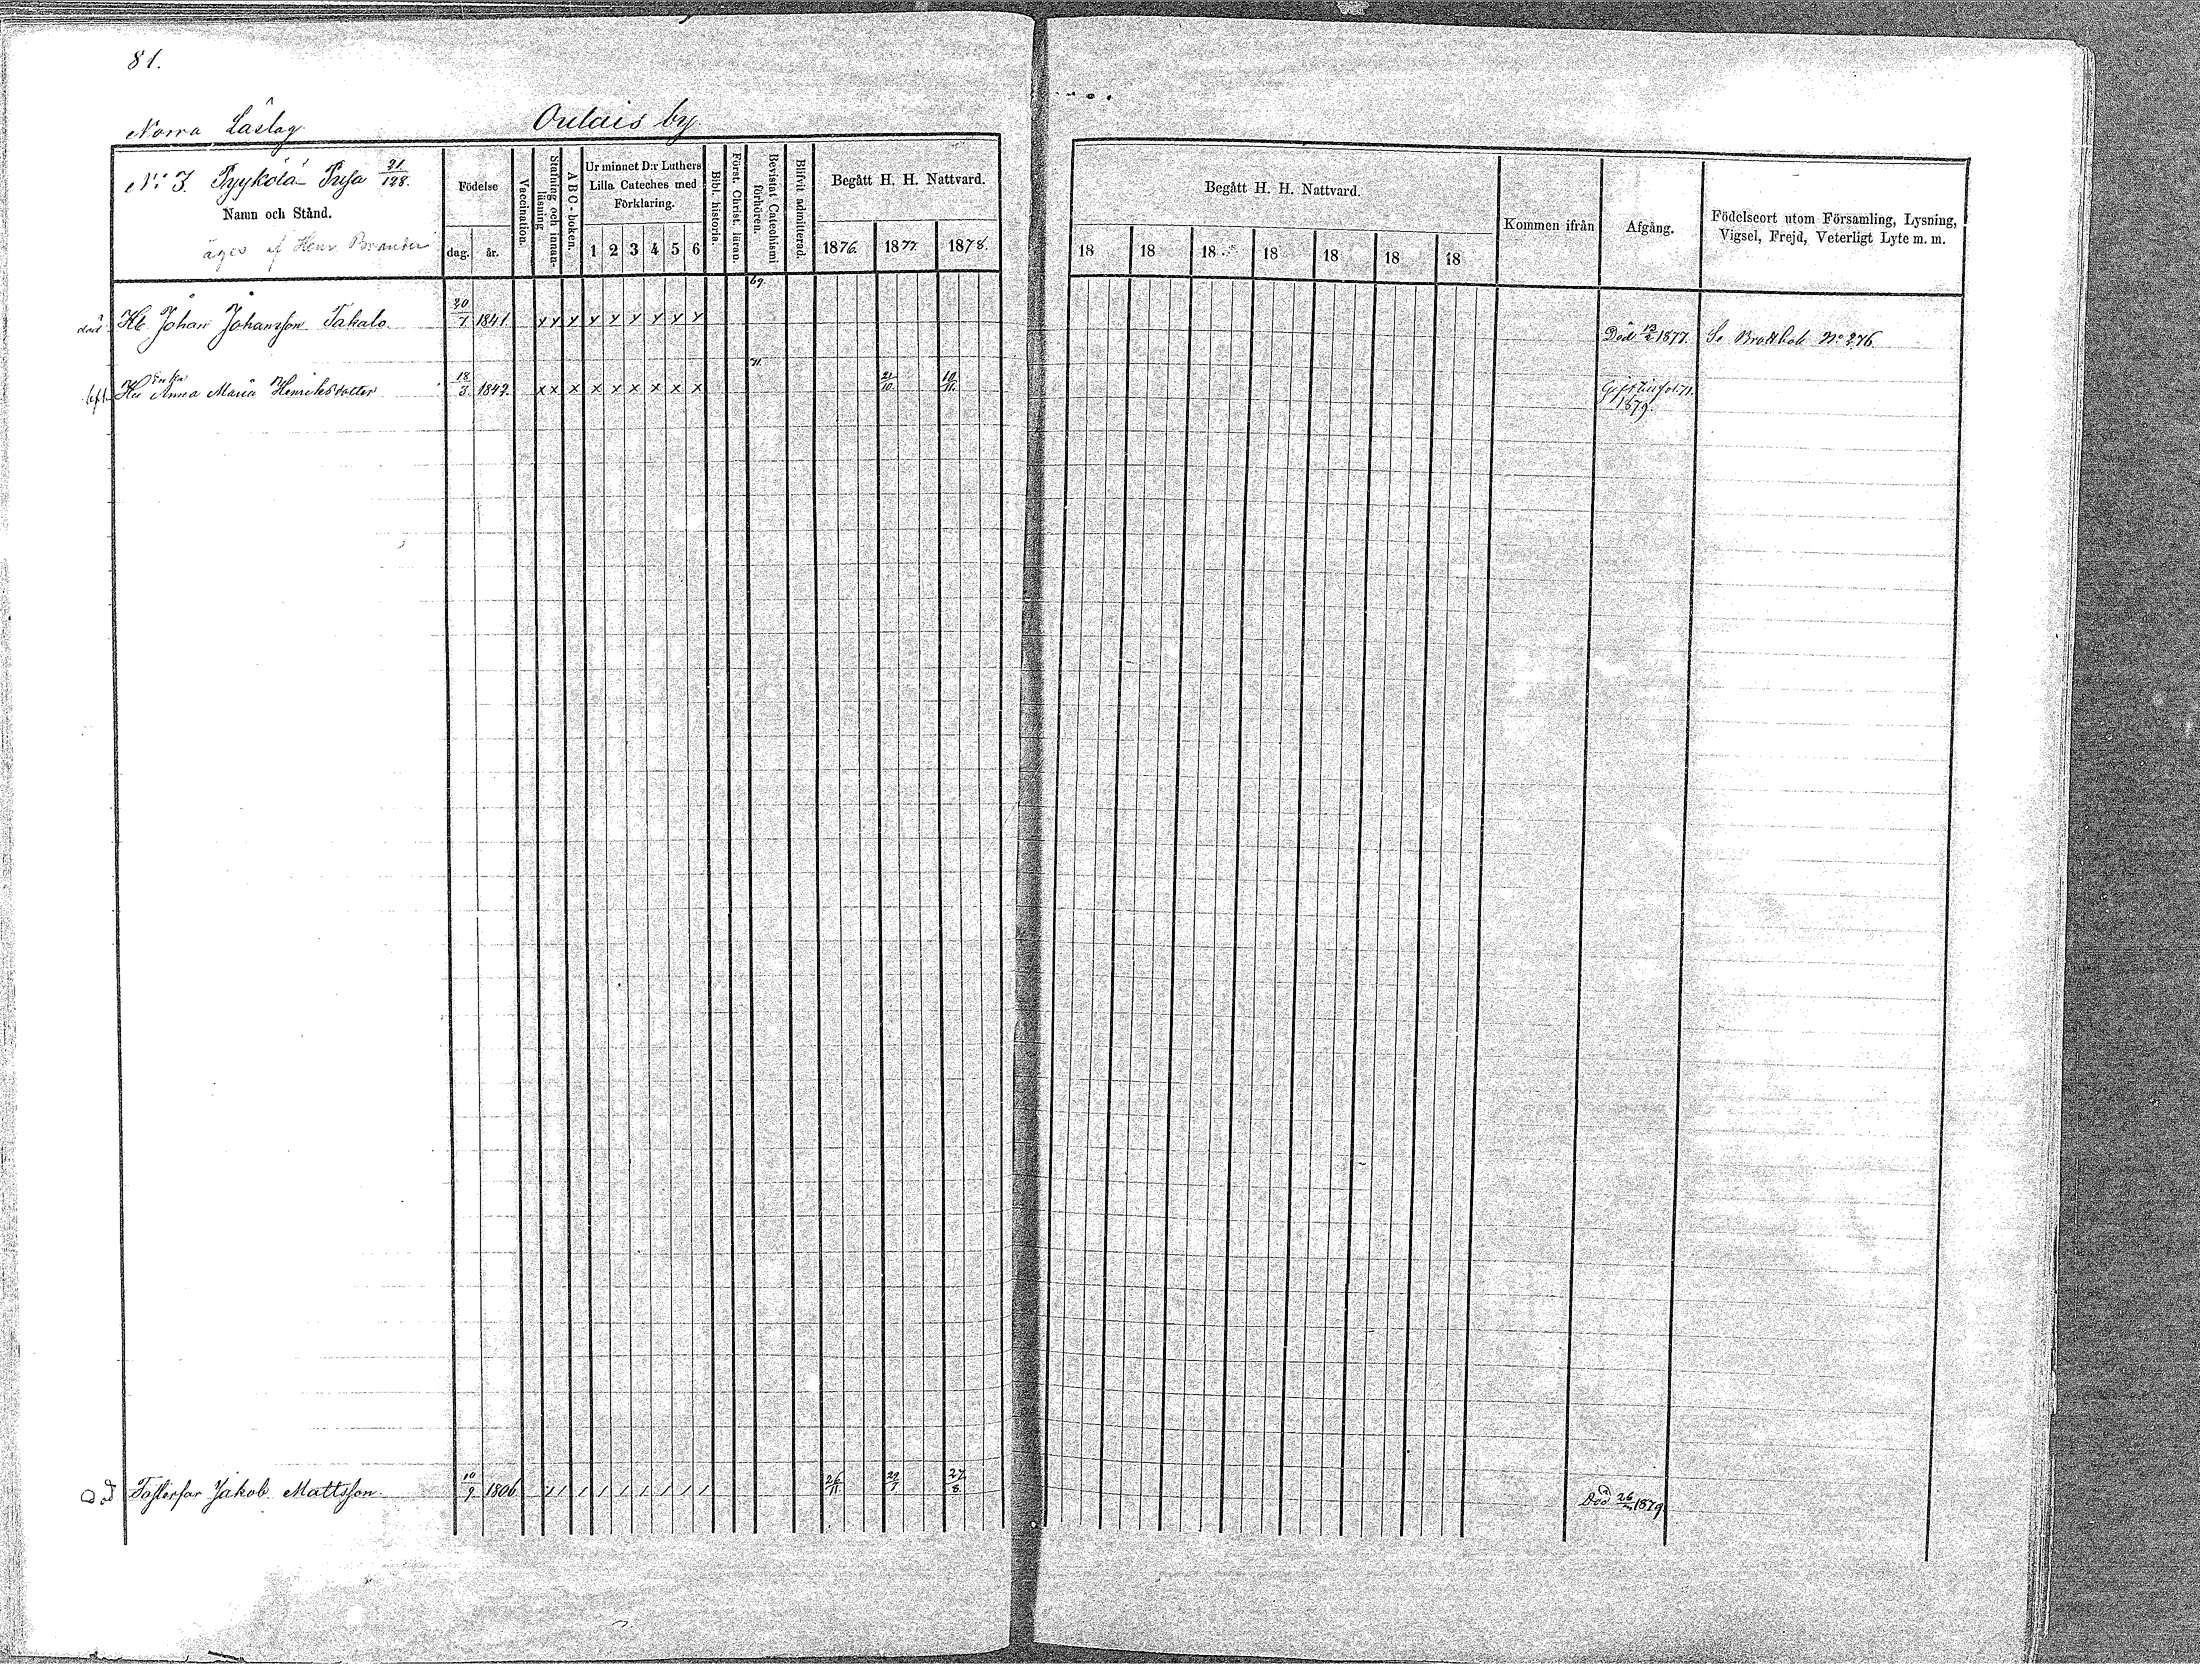 81.
Norra Låslag
Oulais by
No 3. Pyykölä Pusa 21/128.
Namn och Stånd.
äges af Henr Brander
Födelse
dag. år.
Vaccination.
Stafning och innanläsning
A B C-boken.
Ur minnet D:r Luthers
Lilla Cateches med
Förklaring.
1 2 3 4 5 6
Bibl. historia.
Först. Christ. läran.
Bevistat Catechismi förhören.
Blifvit admitterad.
Begått H. H. Nattvard.
1876. 1877 1878.
Begått H. H. Nattvard.
18 18 18 18 18 18 18
Kommen ifrån
Afgång.
Födelseort utom Församling, Lysning,
Vigsel, Frejd, Veterligt Lyte m. m.
69.
död Johan Johansson Takalo 20/7 1841 x x x x x x x x x Död 13/2 1877. Se Brottbok No 276
71.
Enka
Anna Maria Henriksdotter 18/3 1842. x x x x x x x x x 21/10 10/11 Gift
1879.
död Jakob Mattsson. 10/9 1806 / / / / / / / / / 26/11 29/7 27/8 Död 26/ 1879